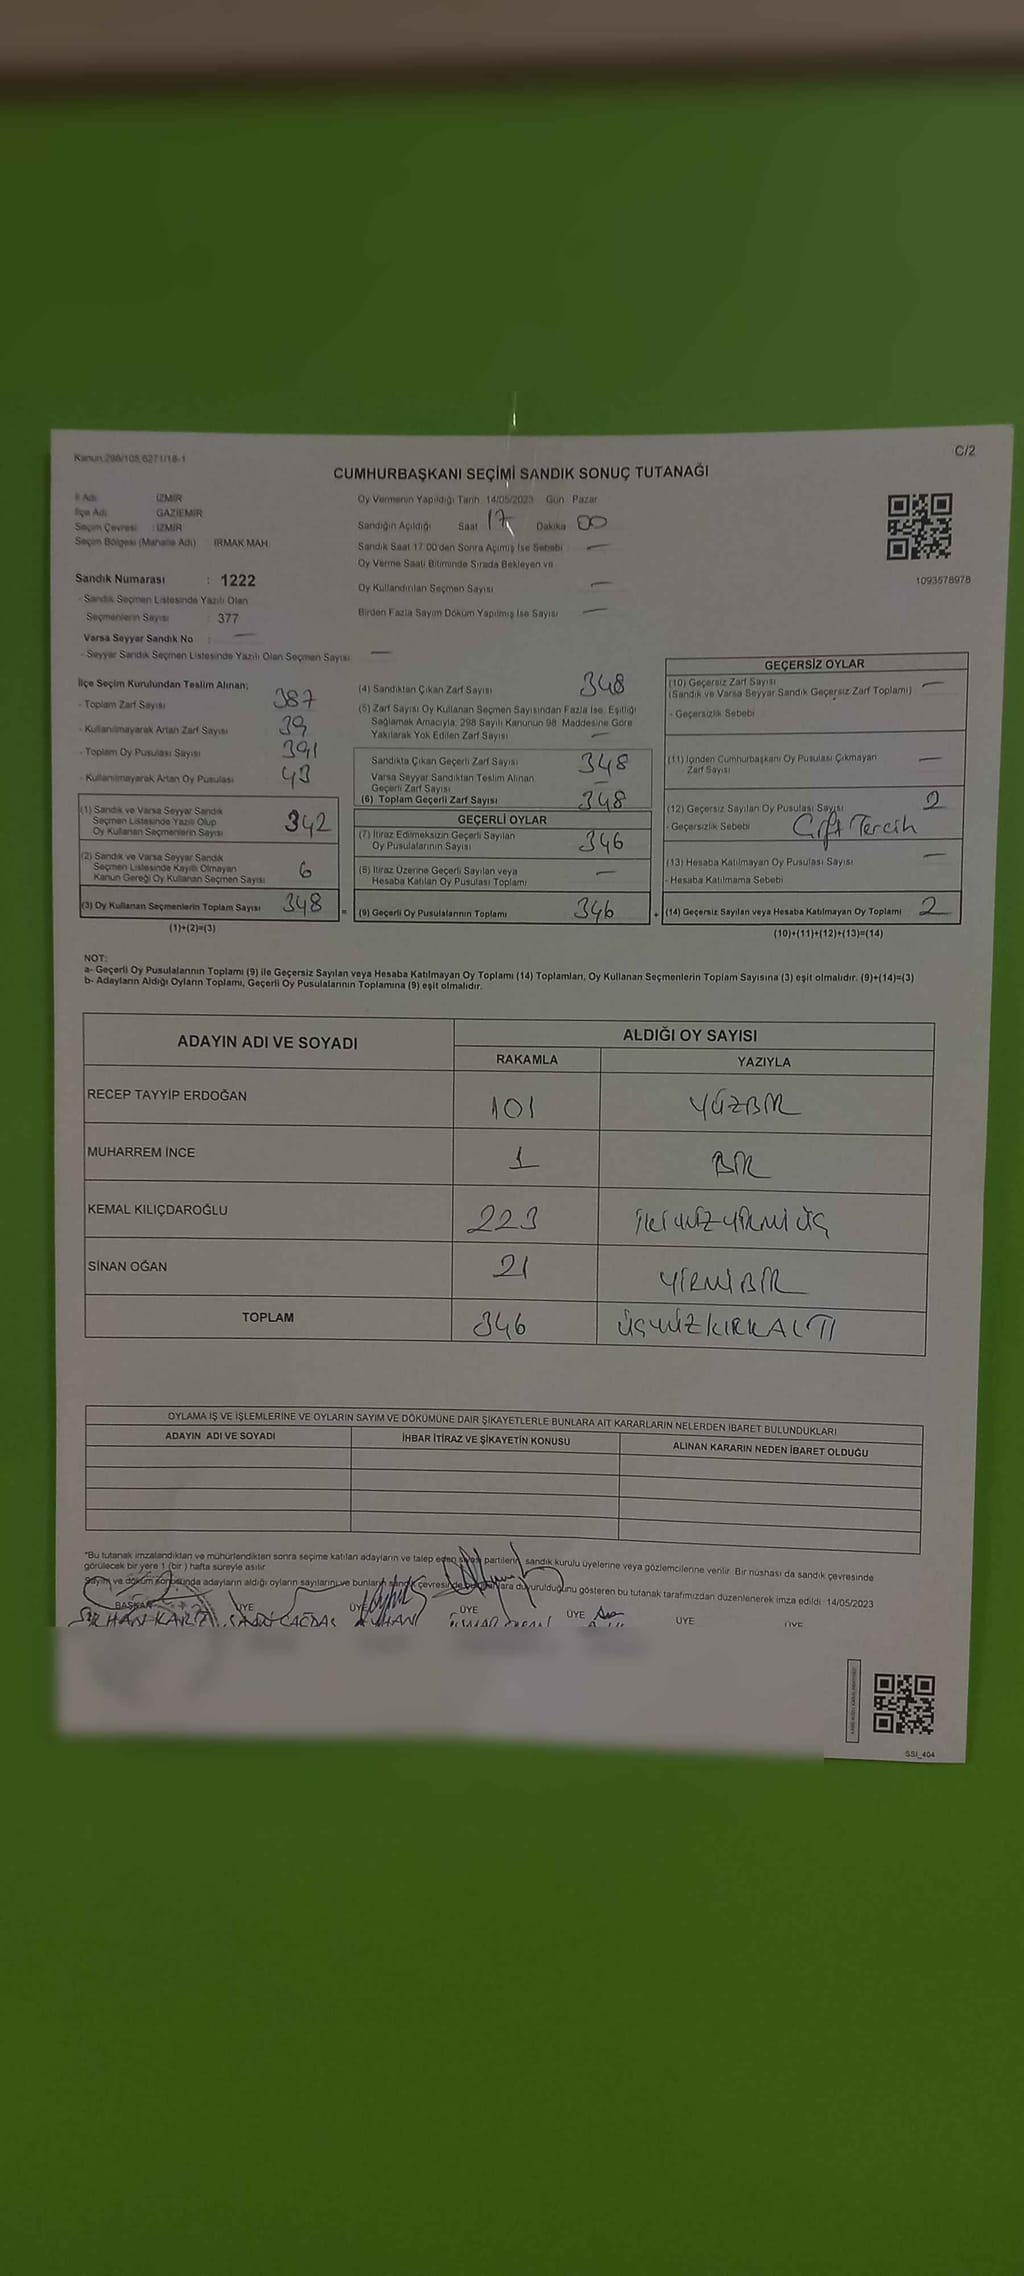 Kanun:298/105,6271/18-1
C/2
CUMHURBAŞKANI SEÇİMİ SANDIK SONUÇ TUTANAĞI
İl Adı : İZMİR
İlçe Adı : GAZİEMİR
Seçim Çevresi : İZMİR
Seçim Bölgesi (Mahalle Adı) : IRMAK MAH.
Sandık Numarası : 1222
- Sandık Seçmen Listesinde Yazılı Olan
Seçmenlerin Sayısı : 377
Varsa Seyyar Sandık No : —
- Seyyar Sandık Seçmen Listesinde Yazılı Olan Seçmen Sayısı —
Oy Vermenin Yapıldığı Tarih 14/05/2023 Gün Pazar
Sandığın Açıldığı Saat 17 Dakika 00
Sandık Saat 17:00'den Sonra Açımış İse Sebebi —
Oy Verme Saati Bitiminde Sırada Bekleyen ve
Oy Kullandırılan Seçmen Sayısı —
Birden Fazla Sayım Döküm Yapılmış İse Sayısı —
1093578978
İlçe Seçim Kurulundan Teslim Alınan;
- Toplam Zarf Sayısı 387
- Kullanılmayarak Artan Zarf Sayısı 39
- Toplam Oy Pusulası Sayısı 391
- Kullanılmayarak Artan Oy Pusulası 43
(1) Sandık ve Varsa Seyyar Sandık
Seçmen Listesinde Yazılı Olup
Oy Kullanan Seçmenlerin Sayısı 342
(2) Sandık ve Varsa Seyyar Sandık
Seçmen Listesinde Kayıtlı Olmayan
Kanun Gereği Oy Kullanan Seçmen Sayısı 6
(3) Oy Kullanan Seçmenlerin Toplam Sayısı 348
(1)+(2)=(3)
=
(4) Sandıktan Çıkan Zarf Sayısı 348
(5) Zarf Sayısı Oy Kullanan Seçmen Sayısından Fazla İse, Eşitliği
Sağlamak Amacıyla, 298 Sayılı Kanunun 98. Maddesine Göre
Yakılarak Yok Edilen Zarf Sayısı —
Sandıkta Çıkan Geçerli Zarf Sayısı 348
Varsa Seyyar Sandıktan Teslim Alınan
Geçerli Zarf Sayısı —
(6) Toplam Geçerli Zarf Sayısı 348
GEÇERLİ OYLAR
(7) İtiraz Edilmeksizin Geçerli Sayılan
Oy Pusulalarının Sayısı 346
(8) İtiraz Üzerine Geçerli Sayılan veya
Hesaba Katılan Oy Pusulası Toplamı —
(9) Geçerli Oy Pusulalarının Toplamı 346
+
GEÇERSİZ OYLAR
(10) Geçersiz Zarf Sayısı —
(Sandık ve Varsa Seyyar Sandık Geçersiz Zarf Toplamı)
- Geçersizlik Sebebi
(11) İçinden Cumhurbaşkanı Oy Pusulası Çıkmayan
Zarf Sayısı —
(12) Geçersiz Sayılan Oy Pusulası Sayısı 2
- Geçersizlik Sebebi Çift Tercih
(13) Hesaba Katılmayan Oy Pusulası Sayısı —
- Hesaba Katılmama Sebebi
(14) Geçersiz Sayılan veya Hesaba Katılmayan Oy Toplamı 2
(10)+(11)+(12)+(13)=(14)
NOT:
a- Geçerli Oy Pusulalarının Toplamı (9) ile Geçersiz Sayılan veya Hesaba Katılmayan Oy Toplamı (14) Toplamları, Oy Kullanan Seçmenlerin Toplam Sayısına (3) eşit olmalıdır. (9)+(14)=(3)
b- Adayların Aldığı Oyların Toplamı, Geçerli Oy Pusulalarının Toplamına (9) eşit olmalıdır.
ADAYIN ADI VE SOYADI ALDIĞI OY SAYISI
RAKAMLA YAZIYLA
RECEP TAYYİP ERDOĞAN 101 YÜZBİR
MUHARREM İNCE 1 BİR
KEMAL KILIÇDAROĞLU 223 İKİYÜZYİRMİÜÇ
SİNAN OĞAN 21 YİRMİBİR
TOPLAM 346 ÜÇYÜZKIRKALTI
OYLAMA İŞ VE İŞLEMLERİNE VE OYLARIN SAYIM VE DÖKÜMÜNE DAİR ŞİKAYETLERLE BUNLARA AİT KARARLARIN NELERDEN İBARET BULUNDUKLARI
ADAYIN ADI VE SOYADI İHBAR İTİRAZ VE ŞİKAYETİN KONUSU ALINAN KARARIN NEDEN İBARET OLDUĞU
*Bu tutanak imzalandıktan ve mühürlendikten sonra seçime katılan adayların ve talep eden siyasi partilerin, sandık kurulu üyelerine veya gözlemcilerine verilir. Bir nüshası da sandık çevresinde
görülecek bir yere 1 (bir ) hafta süreyle asılır.
Sayım ve döküm sonucunda adayların aldığı oyların sayılarını ve bunların sandık çevresinde duyurulduğunu gösteren bu tutanak tarafımızdan düzenlenerek imza edildi. 14/05/2023
BAŞKAN ÜYE ÜYE ÜYE ÜYE ÜYE ÜYE
SSI_404